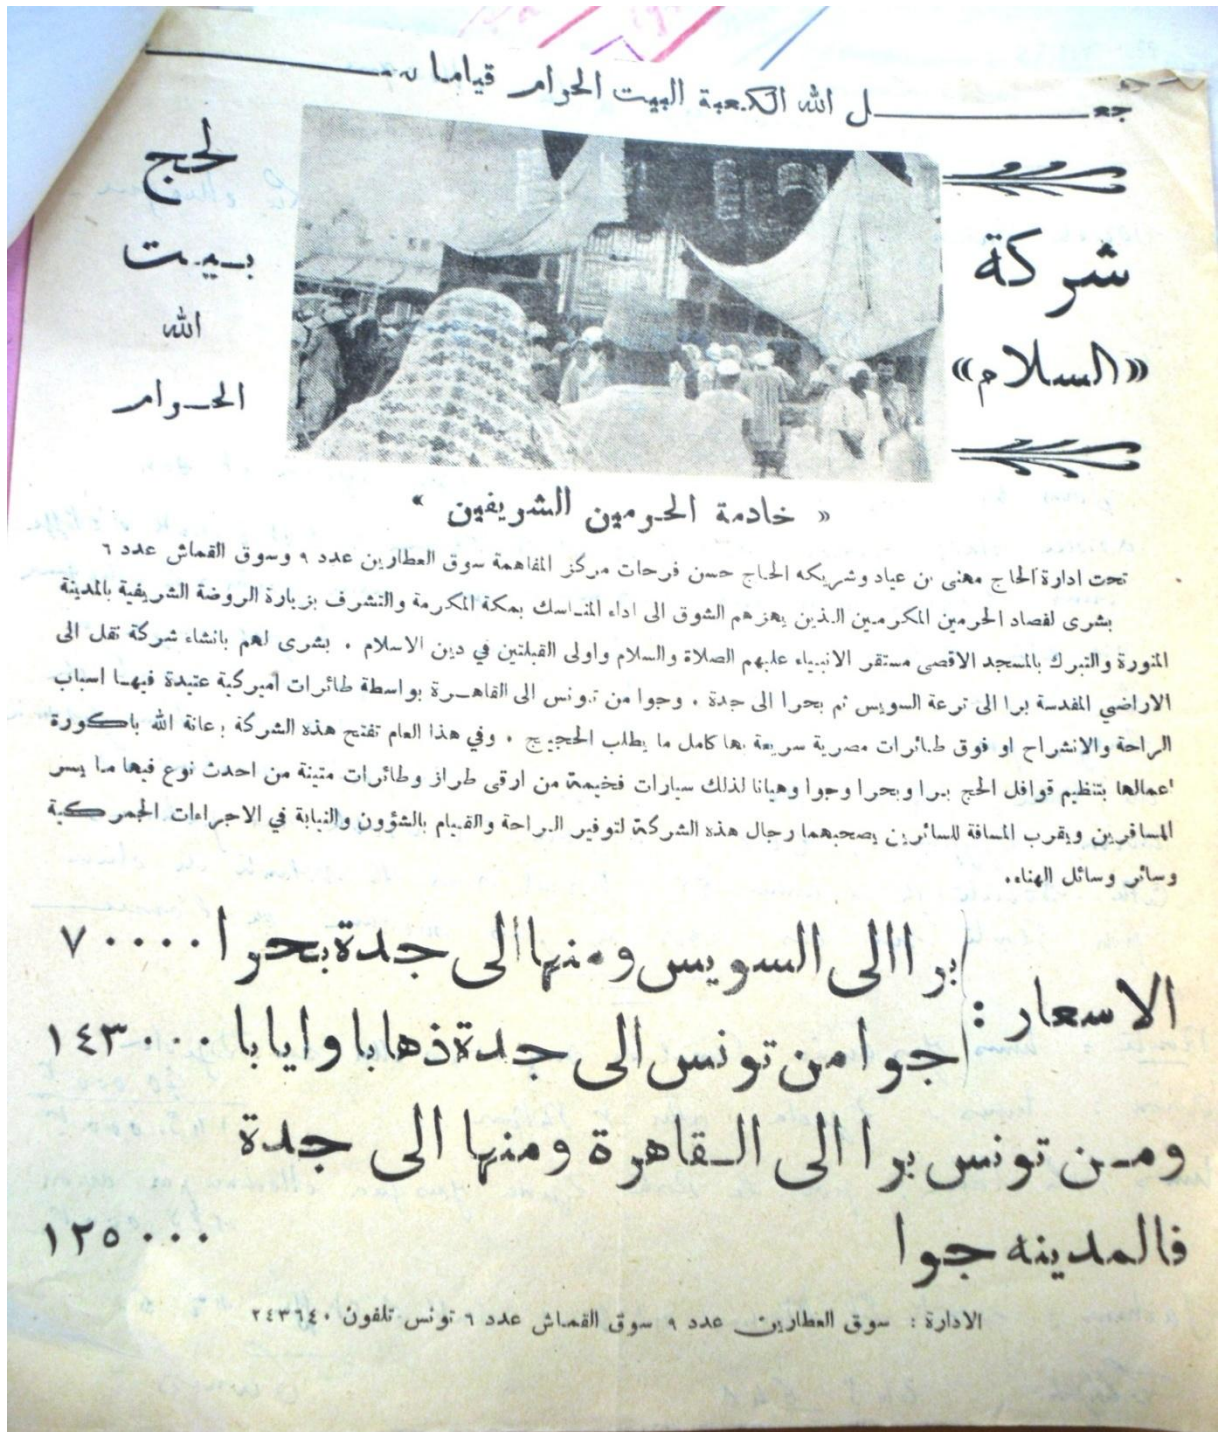 جعل الله الكعبة البيت الحرام قياما
شركة
«السلام»
لحج
بيت
الله
الحرام
« خادمة الحرمين الشريفين »
تحت ادارة الحاج مهنى بن عياد وشريكه الحاج حسن فرحات مركز المفاهمة سوق العطارين عدد ٩ وسوق القماش عدد ٦
بشرى لقصاد الحرمين المكرمين الذين يهزهم الشوق الى اداء المناسك بمكة المكرمة والتشرف بزيارة الروضة الشريفية بالمدينة
المنورة والتبرك بالمسجد الاقصى مستقر الانبياء عليهم الصلاة والسلام واولى القبلتين في دين الاسلام . بشرى لهم بانشاء شركة نقل الى
الاراضي المقدسة برا الى ترعة السويس ثم بحرا الى جدة . وجوا من تونس الى القاهرة بواسطة طائرات أميركية عتيدة فيها اسباب
الراحة والانشراح او فوق طائرات مصرية سريعة بها كامل ما يطلب الحجيج . وفي هذا العام تفتح هذه الشركة بعانة الله باكورة
اعمالها بتنظيم قوافل الحج برا وبحرا وجوا وهيانا لذلك سيارات فخيمة من ارقى طراز وطائرات متينة من احدث نوع فيها ما يسر
المسافرين ويقرب المسافة للسائرين يصحبهما رجال هذه الشركة لتوفير الراحة والقيام بالشؤون والنيابة في الاجراءات الجمركية
وسائر وسائل الهناء.
الاسعار :
برا الى السويس ومنها الى جدة بحرا ٧٠٠٠٠
جوا من تونس الى جدة ذهابا وايابا ١٤٣٠٠٠
ومن تونس برا الى القاهرة ومنها الى جدة
فالمدينه جوا ١٢٥٠٠٠
الادارة : سوق العطارين عدد ٩ سوق القماش عدد ٦ تونس تلفون ٢٤٣٦٤٠